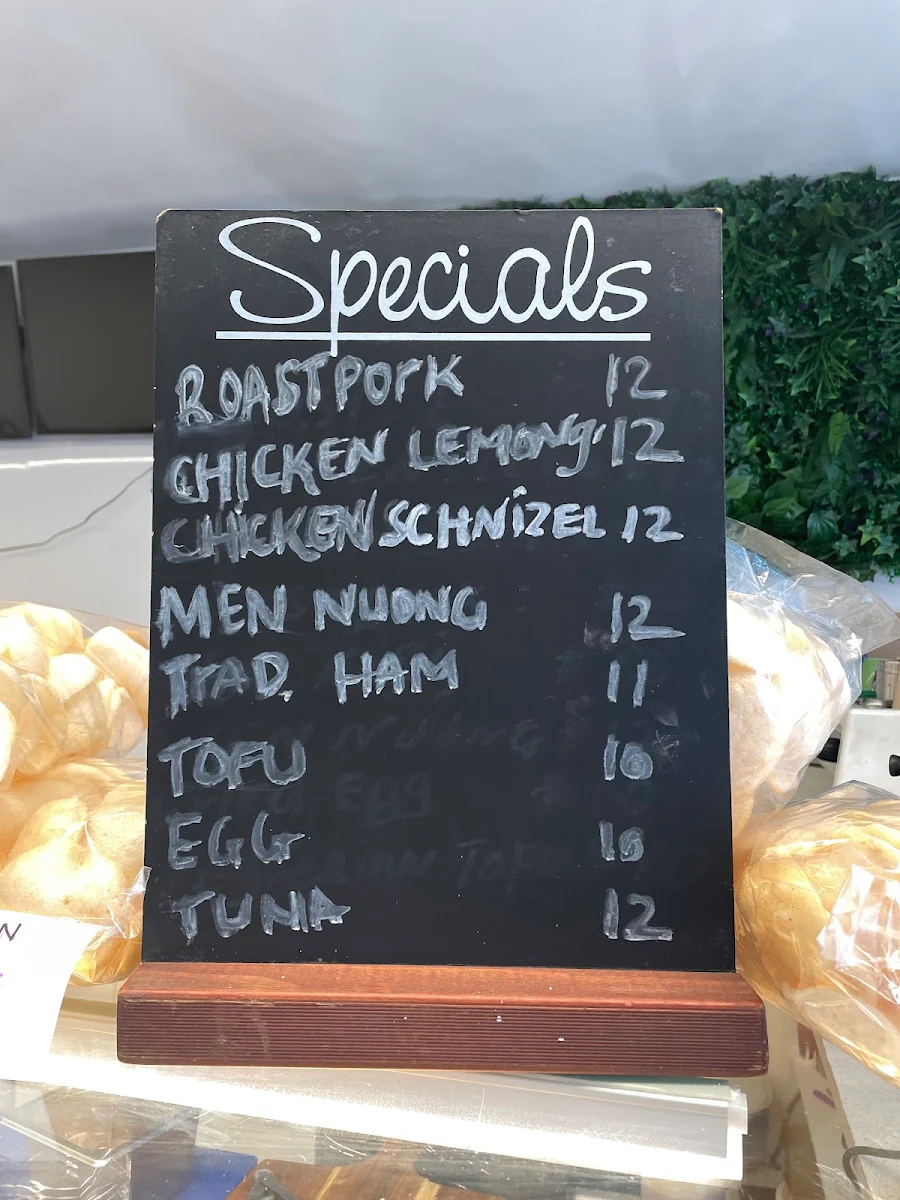 Specials
ROAST PORK 12
CHICKEN LEMONG' 12
CHICKEN SCHNIZEL 12
MEN NUONG 12
TRAD. HAM 11
TOFU 10
EGG 10
TUNA 12